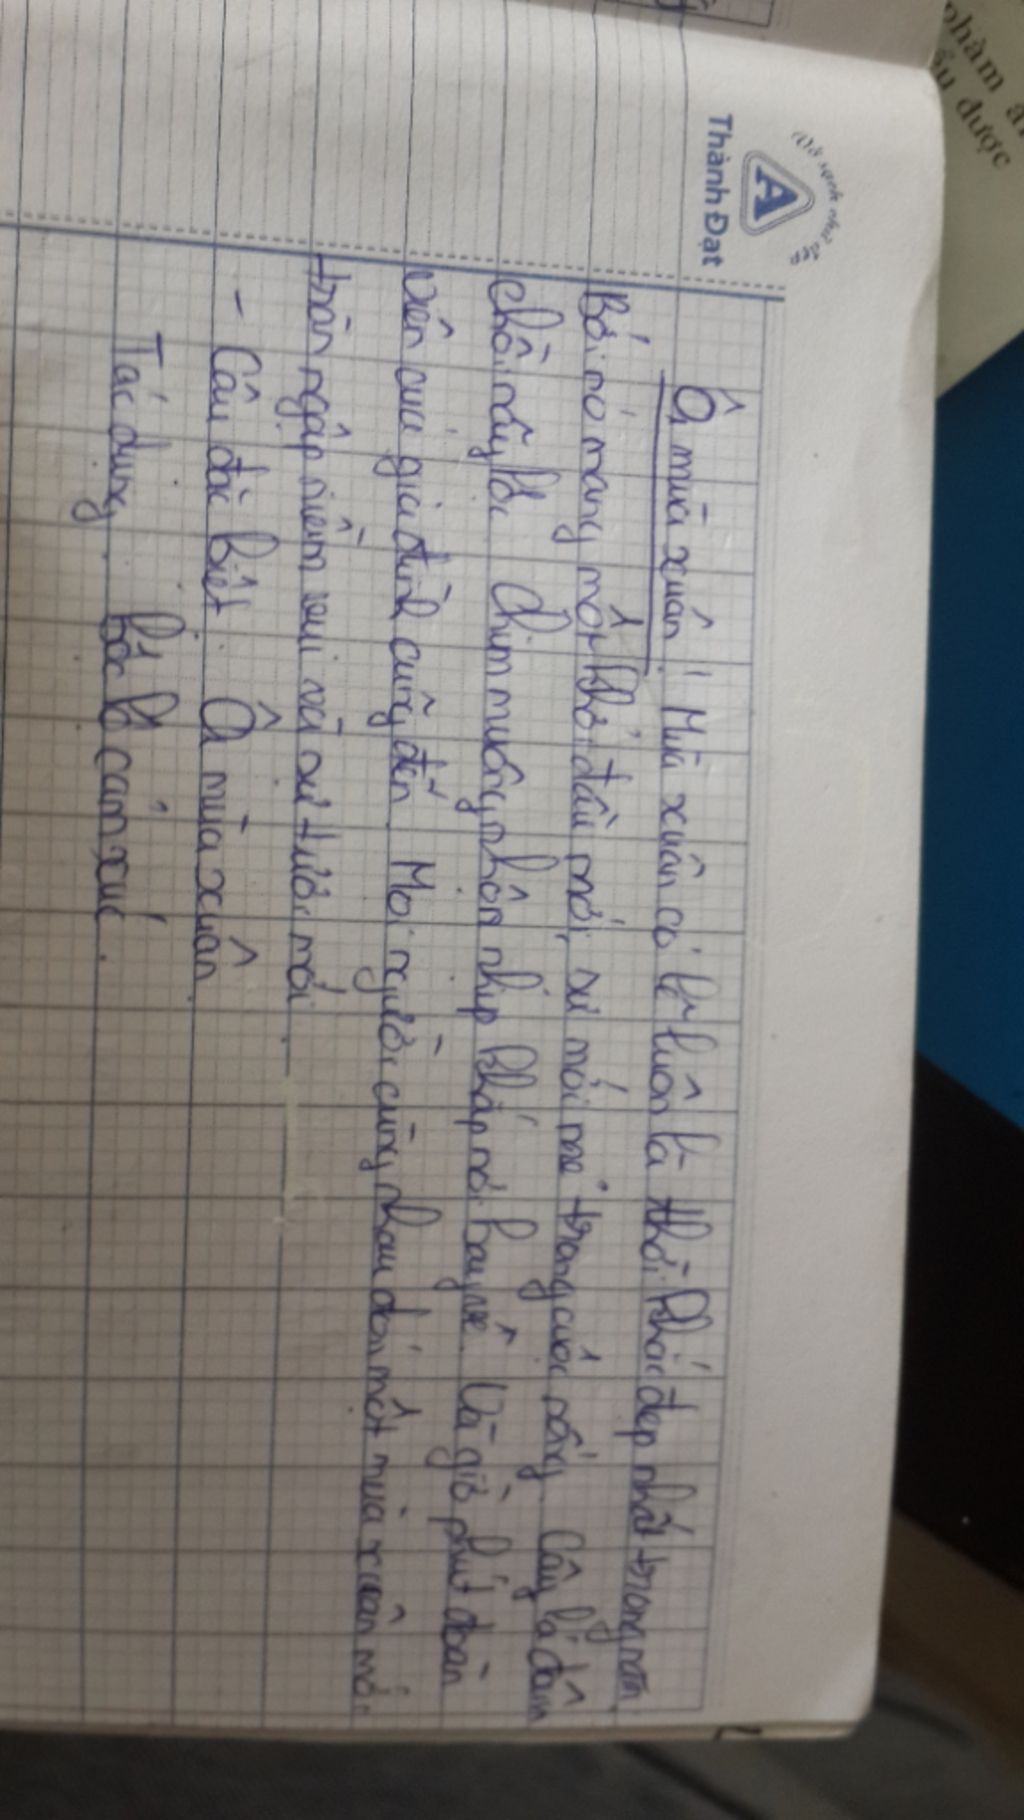 phàm
ấu được
Thành Đạt
A
Ôi mùa xuân! Mùa xuân có lẽ luôn là thời khắc đẹp nhất trong năm
Bởi nó mang một khởi đầu mới, sự mới mẻ trong cuộc sống. Cây lá đâm
chồi nảy lộc. Chim muông nhộn nhịp khắp nơi bay về. Và giờ phút đoàn
viên của gia đình cũng đến. Mọi người cùng nhau đón một mùa xuân mới
tràn ngập niềm vui và sự tươi mới
- Câu đặc biệt: Ôi mùa xuân
Tác dụng: bộc lộ cảm xúc.